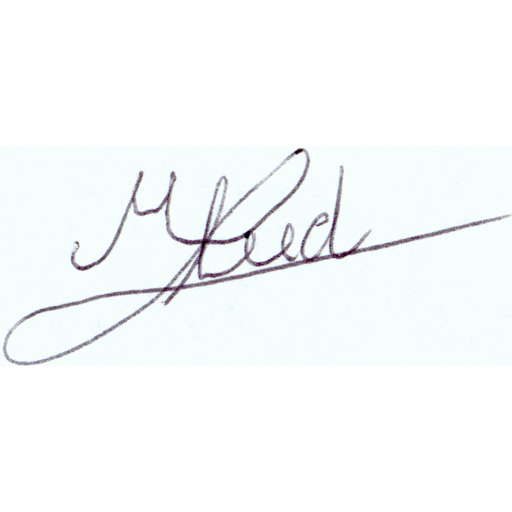 M Reed